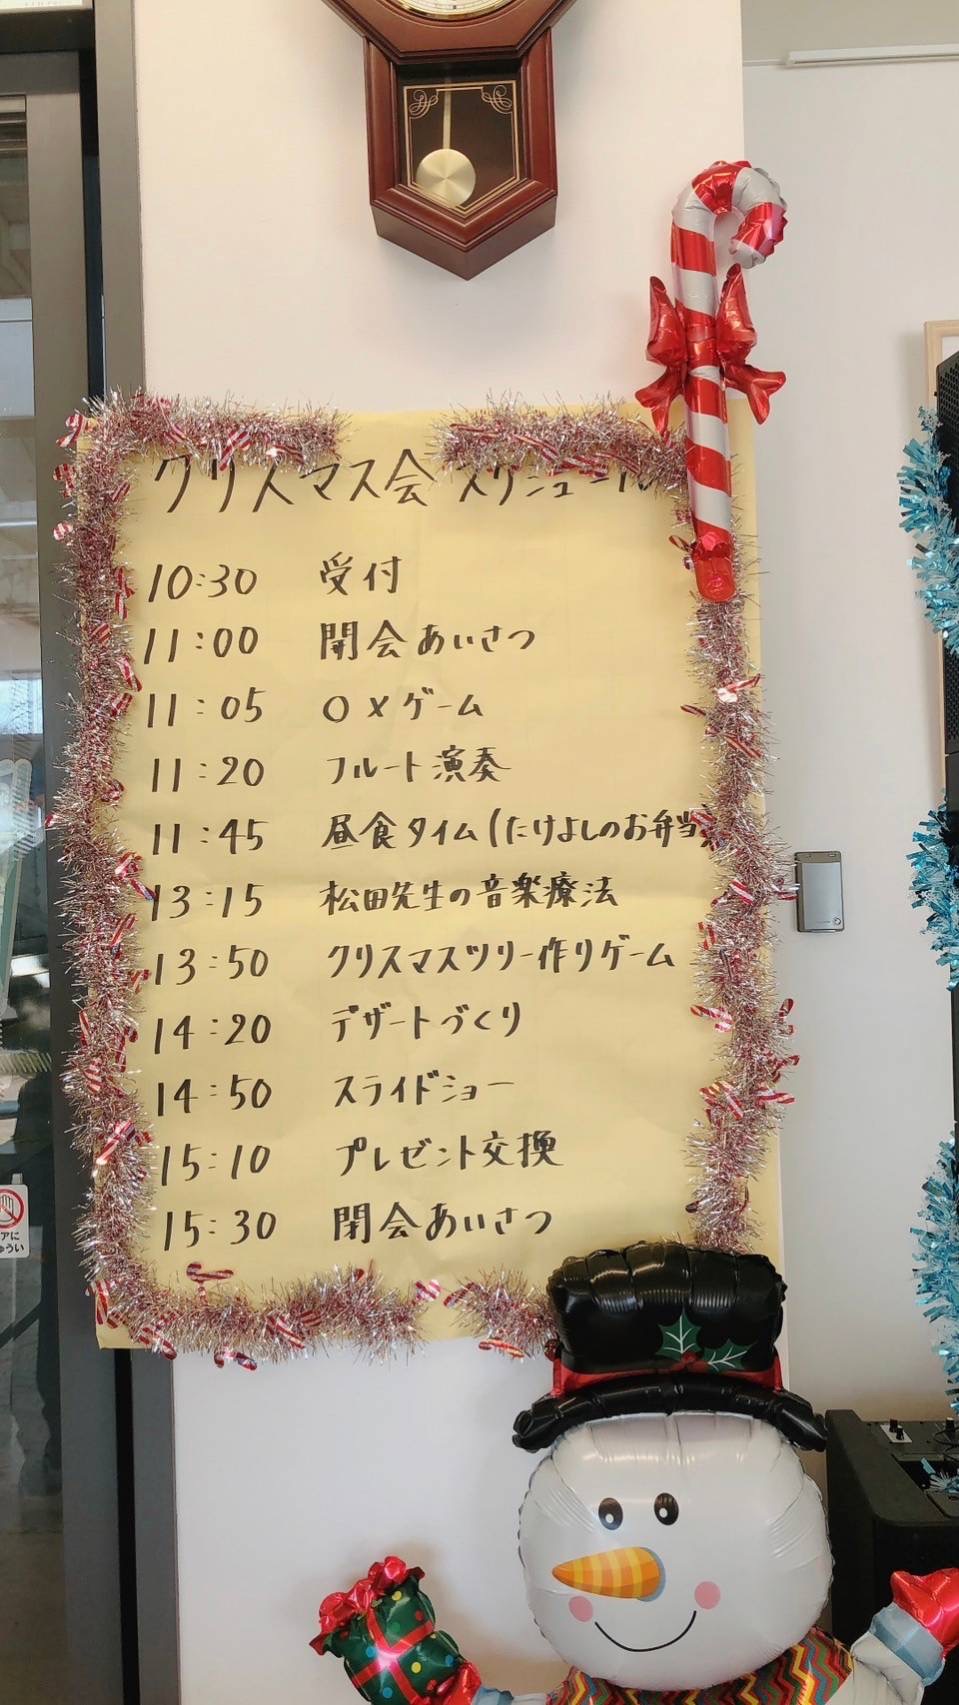 クリスマス会 スケジュール
10:30 受付
11:00 開会あいさつ
11:05 ○×ゲーム
11:20 フルート演奏
11:45 昼食タイム(たけよしのお弁当)
13:15 松田先生の音楽療法
13:50 クリスマスツリー作りゲーム
14:20 デザートづくり
14:50 スライドショー
15:10 プレゼント交換
15:30 閉会あいさつ